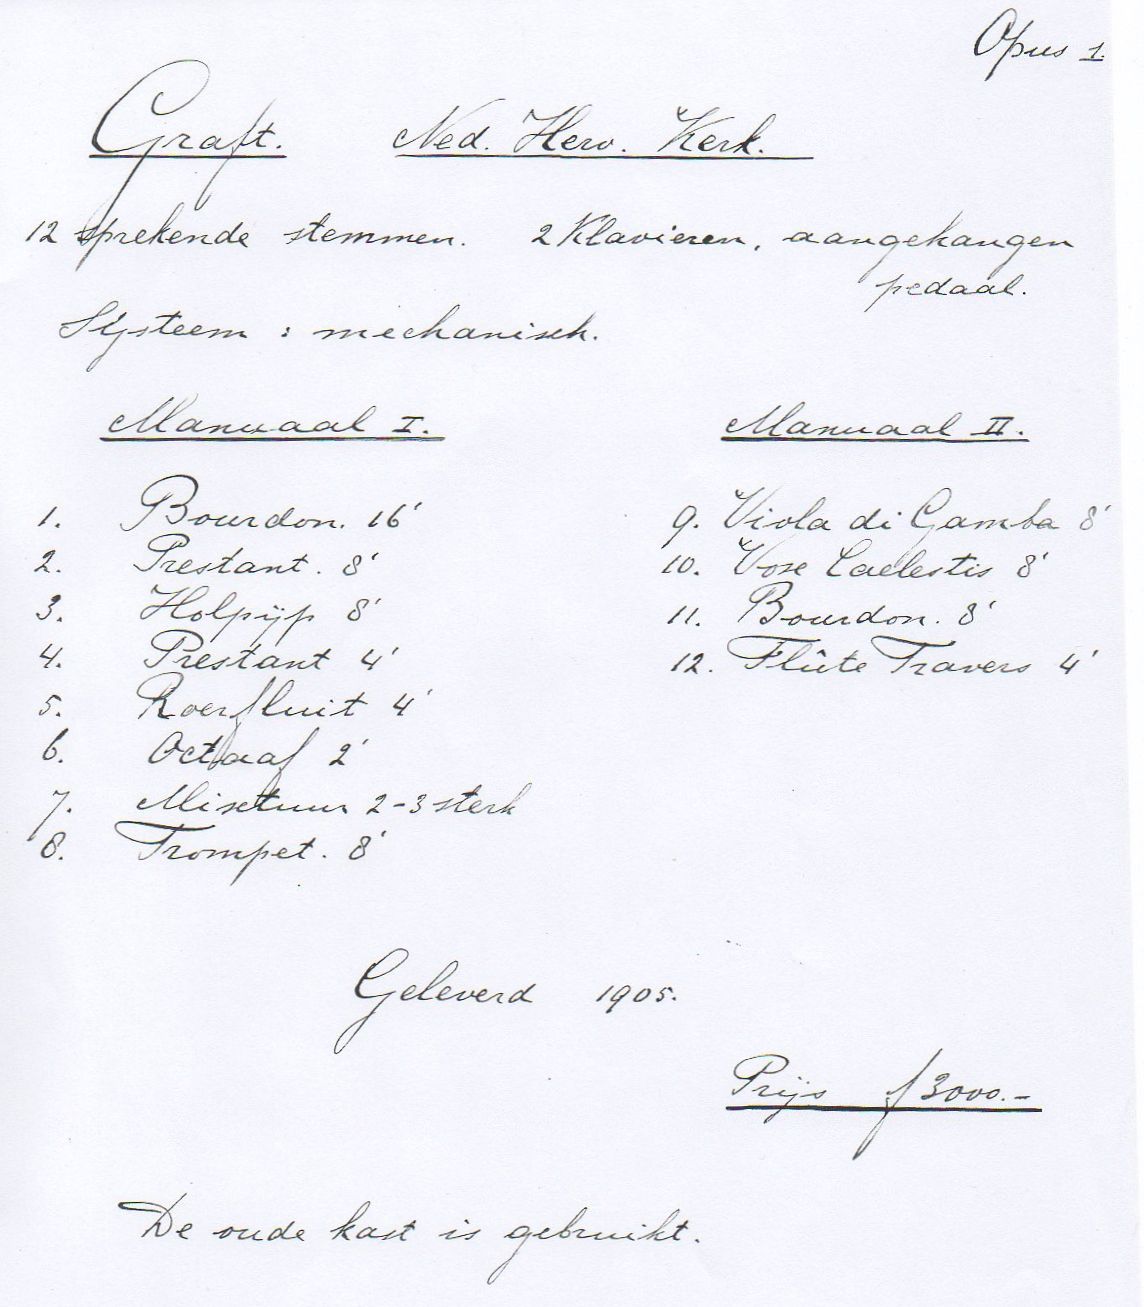 Opus 1.
Graft. Ned. Herv. Kerk.
12 sprekende stemmen. 2 Klavieren, aangehangen
pedaal.
Systeem : mechanisch.
Manuaal I. Manuaal II.
1. Bourdon. 16'
2. Prestant. 8'
3. Holpijp 8'
4. Prestant 4'
5. Roerfluit 4'
6. Octaaf 2'
7. Mixtuur 2-3 sterk
8. Trompet. 8'
9. Viola di Gamba 8'
10. Voxe Caelestis 8'
11. Bourdon. 8'
12. Flûte Travers 4'
Geleverd 1905.
Prijs f 3000.-
De oude kast is gebruikt.